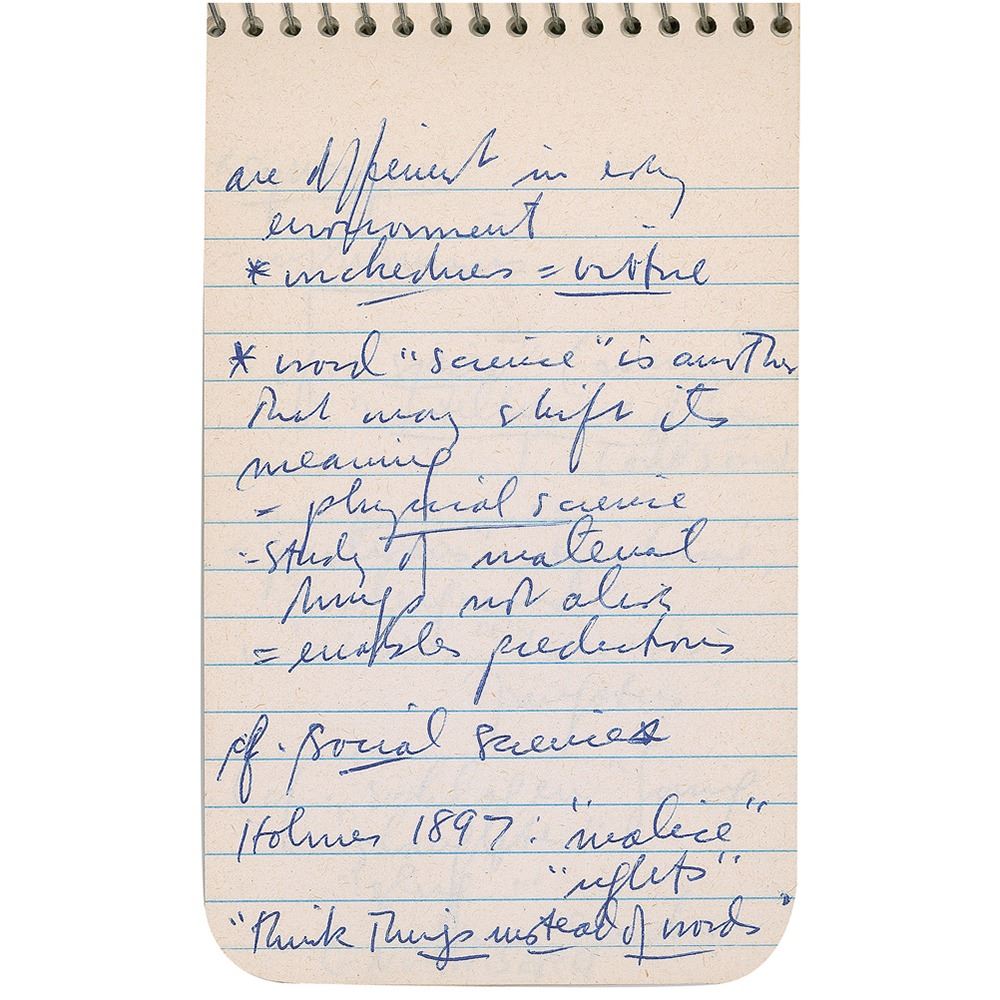 are different in
environment
* wickedness = virtue
* word "science" is another
that may shift its
meaning
= physical science
- study of material
things not alive
= enables predictions
cf. social science
Holmes 1897: "malice"
"rights"
"think things instead of words"